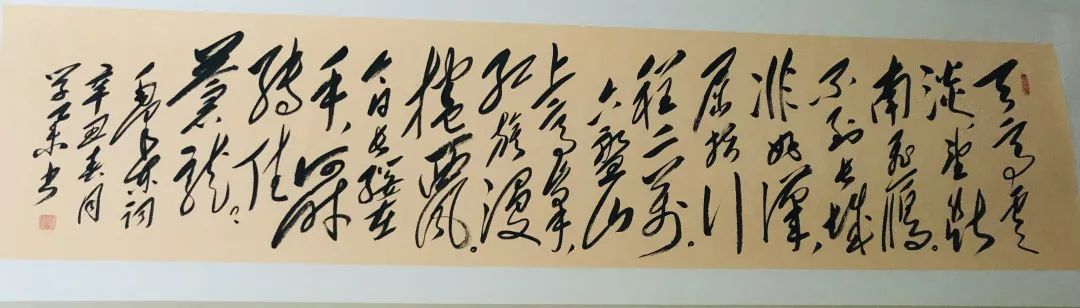 天高雲
淡望断
南飛雁。
不到长城
非好漢,
屈指行
程二萬。
六盤山
上高峯,
红旗漫
捲西風。
今日长缨在
手,何时
缚住
蒼龍
毛泽东词
辛丑春月
学书